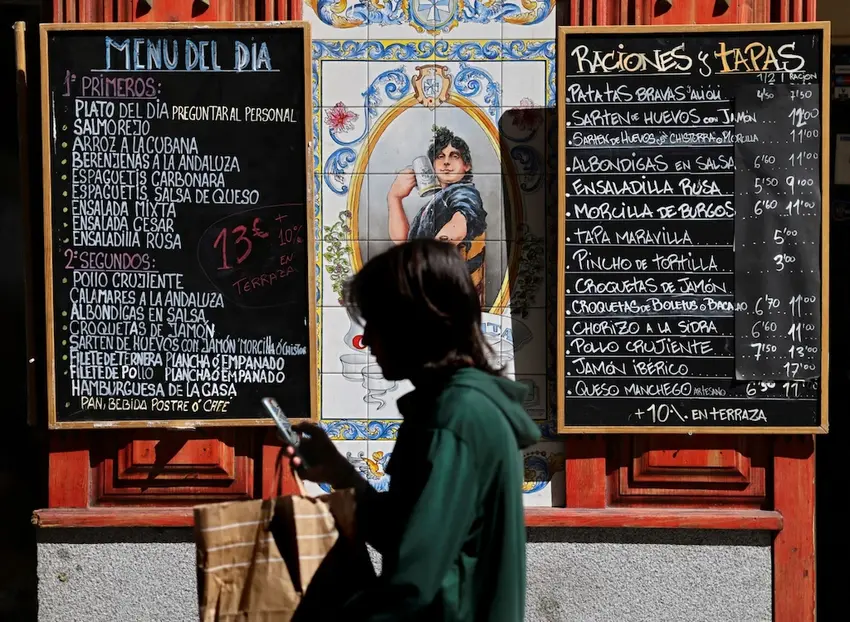 MENU DEL DIA
1º PRIMEROS:
PLATO DEL DIA PREGUNTAR AL PERSONAL
SALMOREJO
ARROZ A LA CUBANA
BERENJENAS A LA ANDALUZA
ESPAGUETIS CARBONARA
ESPAGUETIS SALSA DE QUESO
ENSALADA MIXTA
ENSALADA CESAR
ENSALADILLA RUSA
13€ + 10% EN TERRAZA
2º SEGUNDOS:
POLLO CRUJIENTE
CALAMARES A LA ANDALUZA
ALBONDIGAS EN SALSA
CROQUETAS DE JAMÓN
SARTEN DE HUEVOS CON JAMÓN MORCILLA Ó
FILETE DE TERNERA PLANCHA Ó EMPANADO
FILETE DE POLLO PLANCHA Ó EMPANADO
HAMBURGUESA DE LA CASA
PAN, BEBIDA POSTRE Ó CAFE
RACIONES y TAPAS
1/2 1 RACION
PATATAS BRAVAS Y ALIOLI 4'50 7'50
SARTEN DE HUEVOS CON JAMÓN 12'00
SARTEN DE HUEVOS CHISTORRA 11'00
ALBONDIGAS EN SALSA 6'60 11'00
ENSALADILLA RUSA 5'50 9'00
MORCILLA DE BURGOS 6'60 11'00
TAPA MARAVILLA 5'00
PINCHO DE TORTILLA 3'00
CROQUETAS DE JAMÓN
CROQUETAS DE BOLETUS Ó BACALAO 6'70 11'00
CHORIZO A LA SIDRA 6'60 11'00
POLLO CRUJIENTE 7'50 13'00
JAMÓN IBÉRICO 17'00
QUESO MANCHEGO ARTESANO
+10% EN TERRAZA